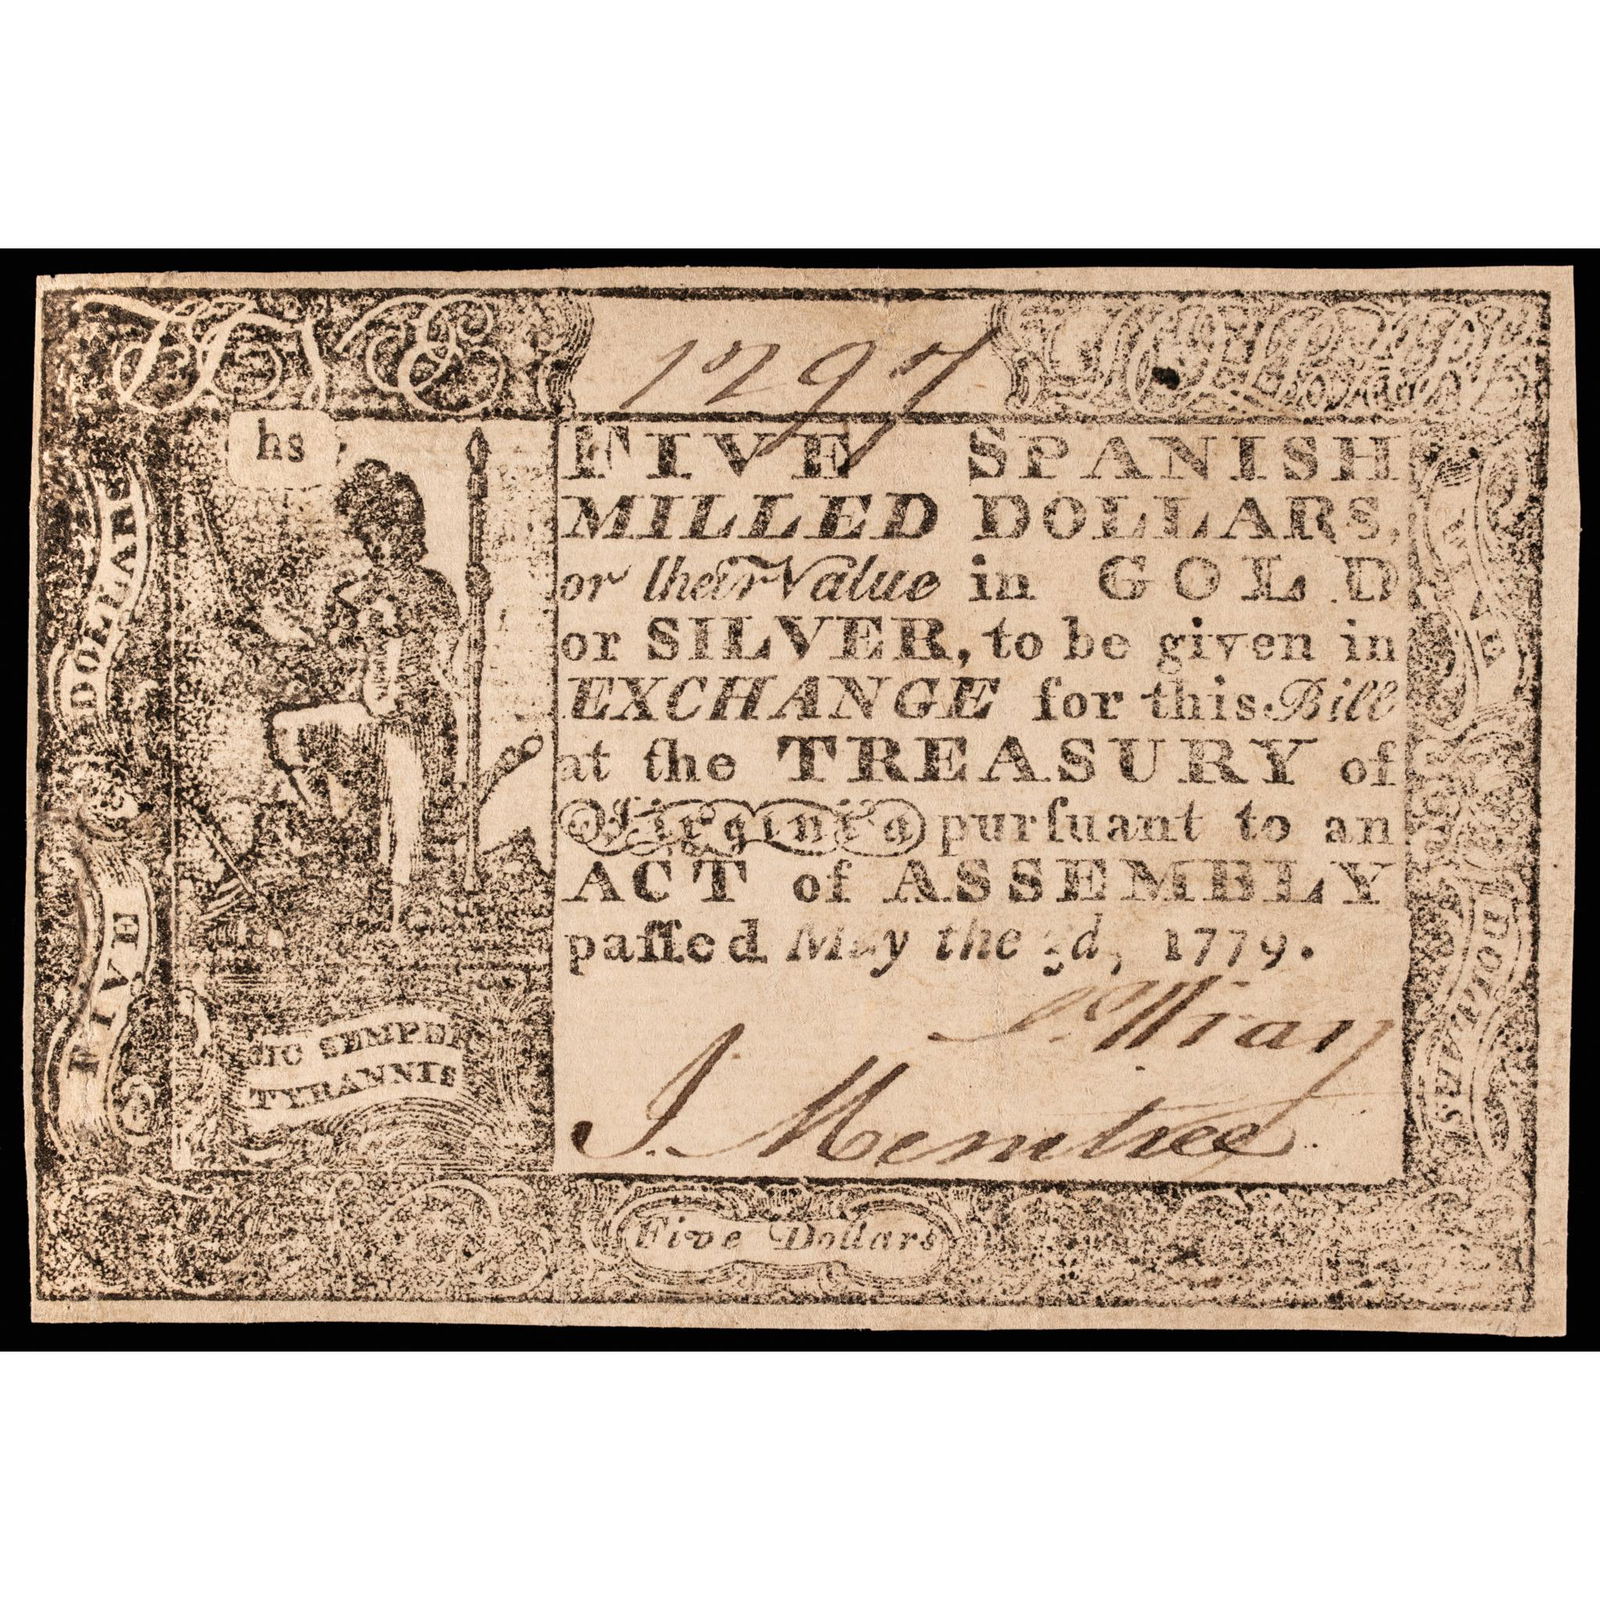 1797
hs
FIVE SPANISH
MILLED DOLLARS,
or their Value in GOLD
or SILVER, to be given in
EXCHANGE for this Bill
at the TREASURY of
Virginia purſuant to an
ACT of ASSEMBLY
paſſed May the 3d, 1779.
J. Mentree
SIC SEMPER
TYRANNIS
FIVE DOLLARS
DOLLARS
Five Dollars